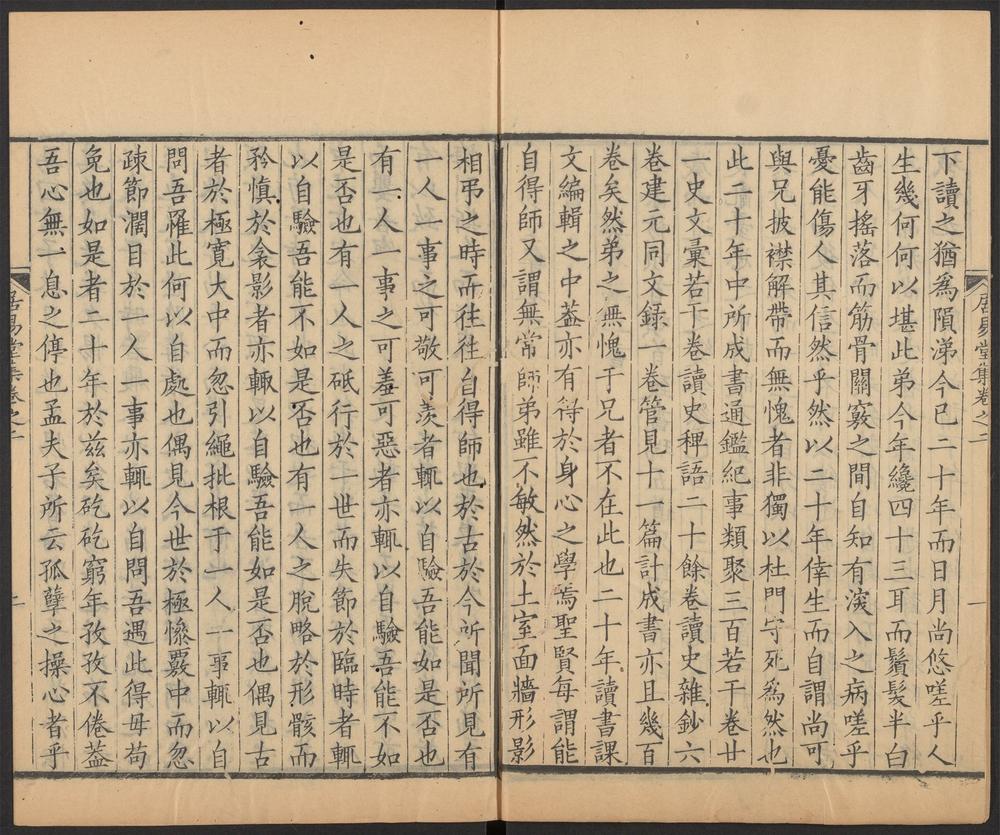 下讀之猶爲隕涕今已二十年而日月尚悠嗟乎人
生幾何何以堪此弟今年纔四十三耳而鬚髮半白
齒牙搖落而筋骨關竅之間自知有演入之病嗟乎
憂能傷人其信然乎然以二十年倖生而自謂尚可
與兄披襟解帶而無愧者非獨以杜門守死爲然也
此二十年中所成書通鑑紀事類聚三百若干卷廿
一史文彙若干卷讀史稗語二十餘卷讀史雜鈔六
卷建元同文録一卷管見十一篇計成書亦且幾百
卷矣然弟之無愧于兄者不在此也二十年讀書課
文編輯之中葢亦有得於身心之學焉聖賢每謂能
自得師又謂無常師弟雖不敏然於土室面牆形影
居易堂集卷之二
一
相弔之時而往往自得師也於古於今所聞所見有
一人一事之可敬可羨者輒以自驗吾能如是否也
有一人一事之可羞可惡者亦輒以自驗吾能不如
是否也有一人之砥行於一世而失節於臨時者輒
以自驗吾能不如是否也有一人之脫略於形骸而
矜愼於衾影者亦輒以自驗吾能如是否也偶見古
者於極寬大中而忽引繩批根于一人一事輒以自
問吾罹此何以自處也偶見今世於極慘覈中而忽
疎節濶目於一人一事亦輒以自問吾遇此得毋苟
免也如是者二十年於兹矣矻矻窮年孜孜不倦葢
吾心無一息之停也孟夫子所云孤孽之操心者乎
居易堂集卷之二